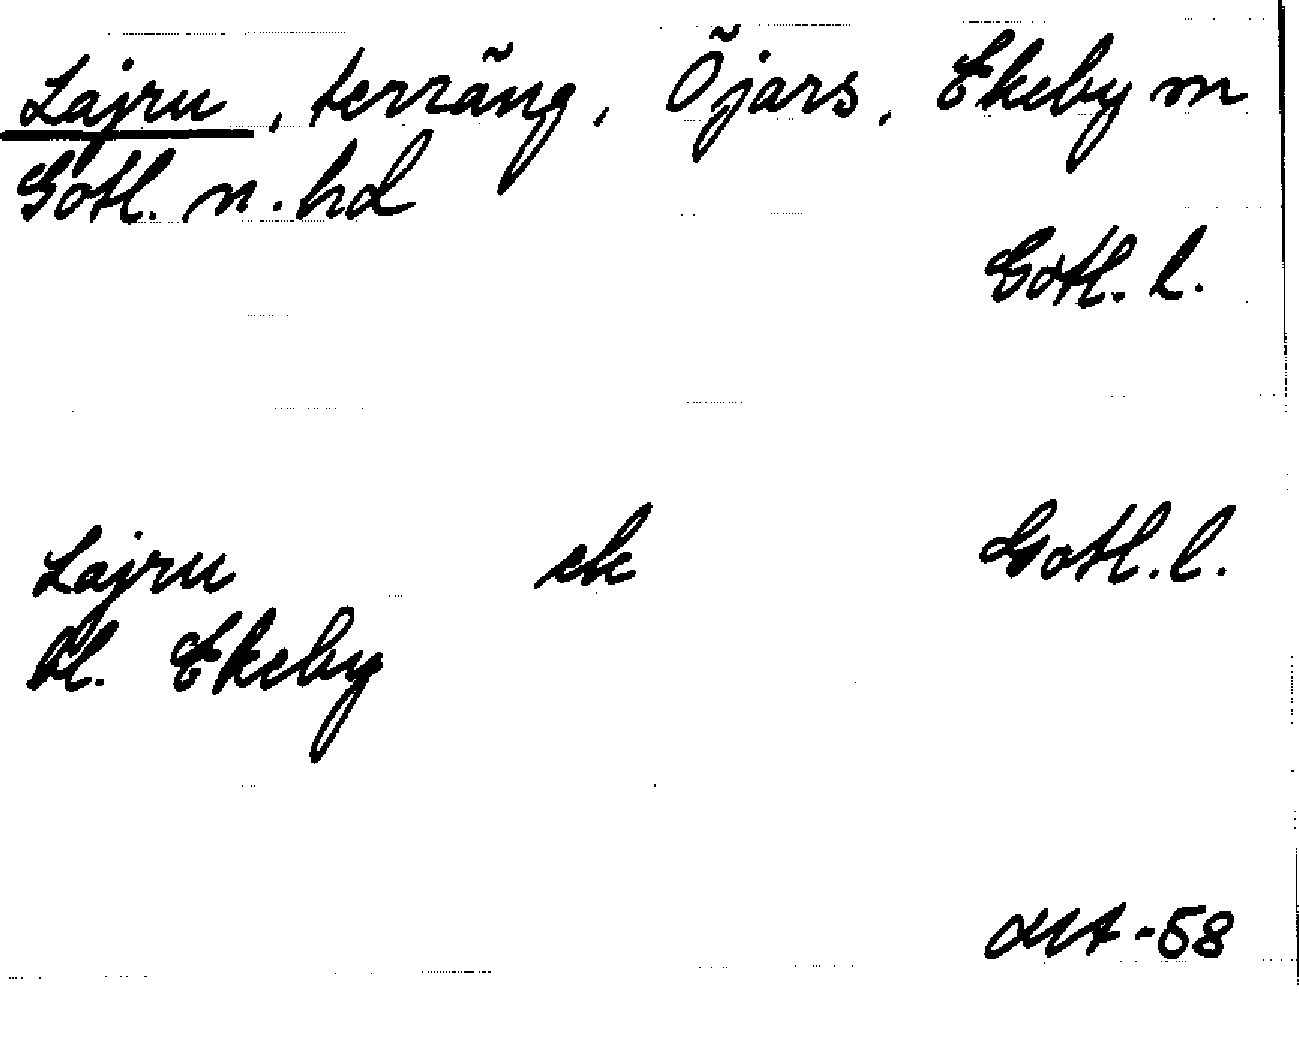 Lajru, terräng, Öjars, Ekeby sn
Gotl. n. hd
Gotl. l.
Lajru ek Gotl. l.
kl. Ekeby
-58